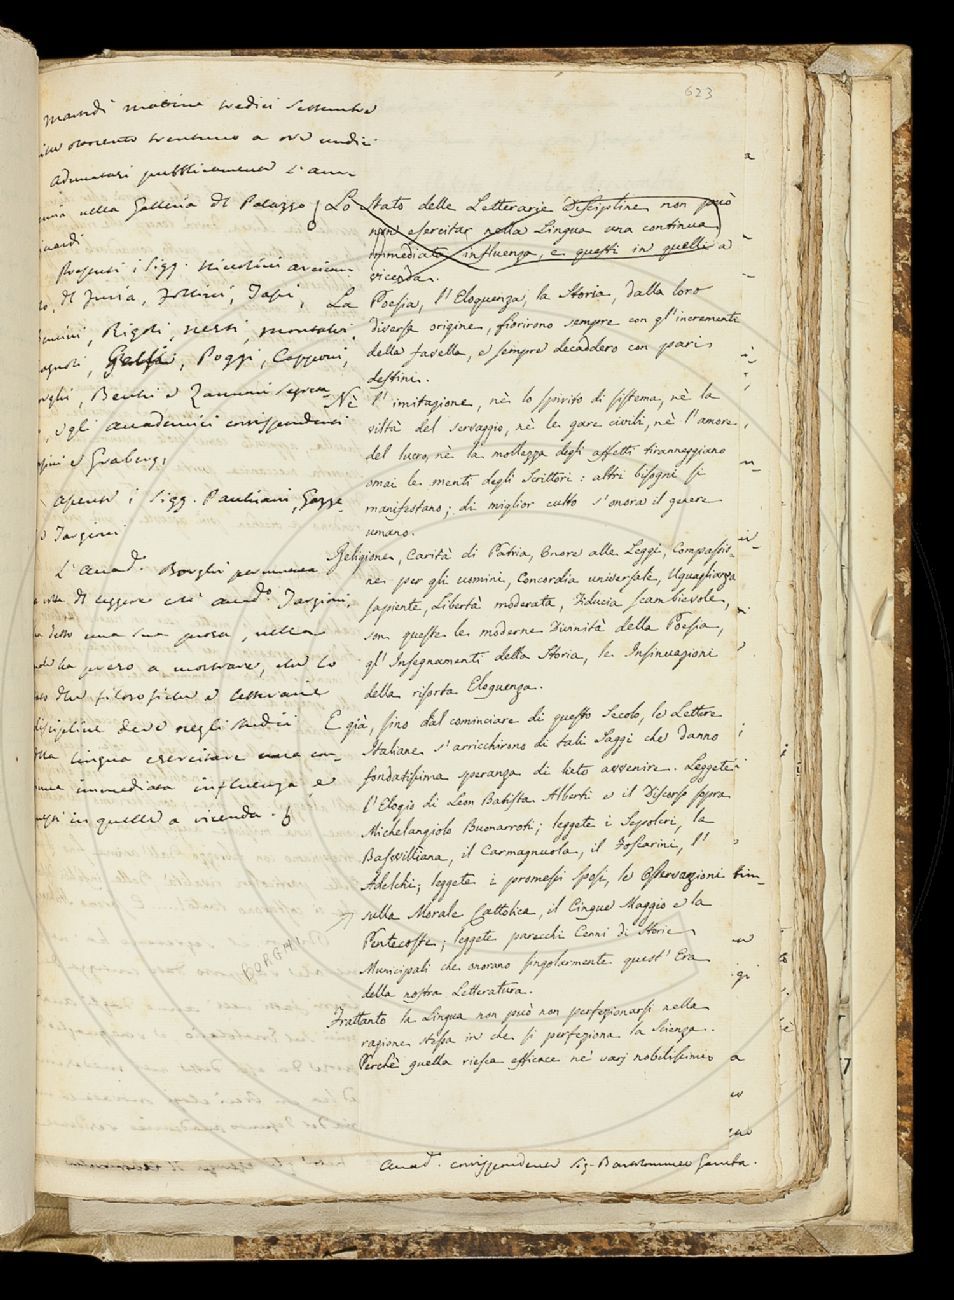 623
Martedì mattina tredici Settembre
ottocento trentuno a ore undici
Adunatasi pubblicamente l'acca-
nella Galleria del Palazzo
Presenti i Sigg. Niccolini arcicon-
del Furia, Follini, Tassi,
Rigoli, Nesti, montalvi
Poggi, Capponi,
Benci e Zannoni segre-
gli accademici corrispondenti
e Graberg;
assenti i Sigg. Pauliani, Gazze
Targioni
L'Accad.
di leggere
una sua prosa, nella
ha preso a mostrare, che lo
delle filosofiche e letterarie
discipline deve negli studii
lingua esercitare una con-
immediata influenza e
in quelle a vicenda.
Lo Stato delle Letterarie Discipline non può
non esercitar nella Lingua una continua
immediata influenza, e questi in quelle a
vicenda.
La Poesia, l'Eloquenza, la Storia, dalla loro
diversa origine, fiorirono sempre con gl'incrementi
della favella, e sempre decaddero con pari
destini.
Nè l'imitazione, nè lo spirito di sistema, nè la
viltà del servaggio, nè le gare civili, nè l'amore
del lucro, nè la mollezza degli affetti tiranneggiano
omai le menti degli Scrittori: altri bisogni si
manifestano; di miglior culto s'onora il genere
umano.
Religione, Carità di Patria, Onore alle Leggi, Compassio-
ne per gli uomini, Concordia universale, Uguaglianza
sapiente, Libertà moderata, Fiducia scambievole,
son queste le moderne Divinità della Poesia,
gl'Insegnamenti della Storia, le Insinuazioni
della risorta Eloquenza.
E già, fino dal cominciare di questo Secolo, le Lettere
Italiane s'arricchirono di tali Saggi che danno
fondatissima speranza di lieto avvenire. Leggete
l'Elogio di Leon Batista Alberti e il Discorso sopra
Michelangiolo Buonarroti; leggete i Sepolcri, la
Basvilliana, il Carmagnuola, il Foscarini, l'
Adelchi; leggete i promessi sposi, le Osservazioni
sulla Morale Cattolica, il Cinque Maggio e la
Pentecoste; leggete parecchi Cenni di Storie
Municipali che onorano singolarmente quest'Era
della nostra Letteratura.
BORGHI
Frattanto la Lingua non può non perfezionarsi nella
ragione stessa in che si perfeziona la Scienza.
Perchè quella riesca efficace ne' varj nobilissimi
Accad. corrispondente Sig. Bartolommeo Gamba.